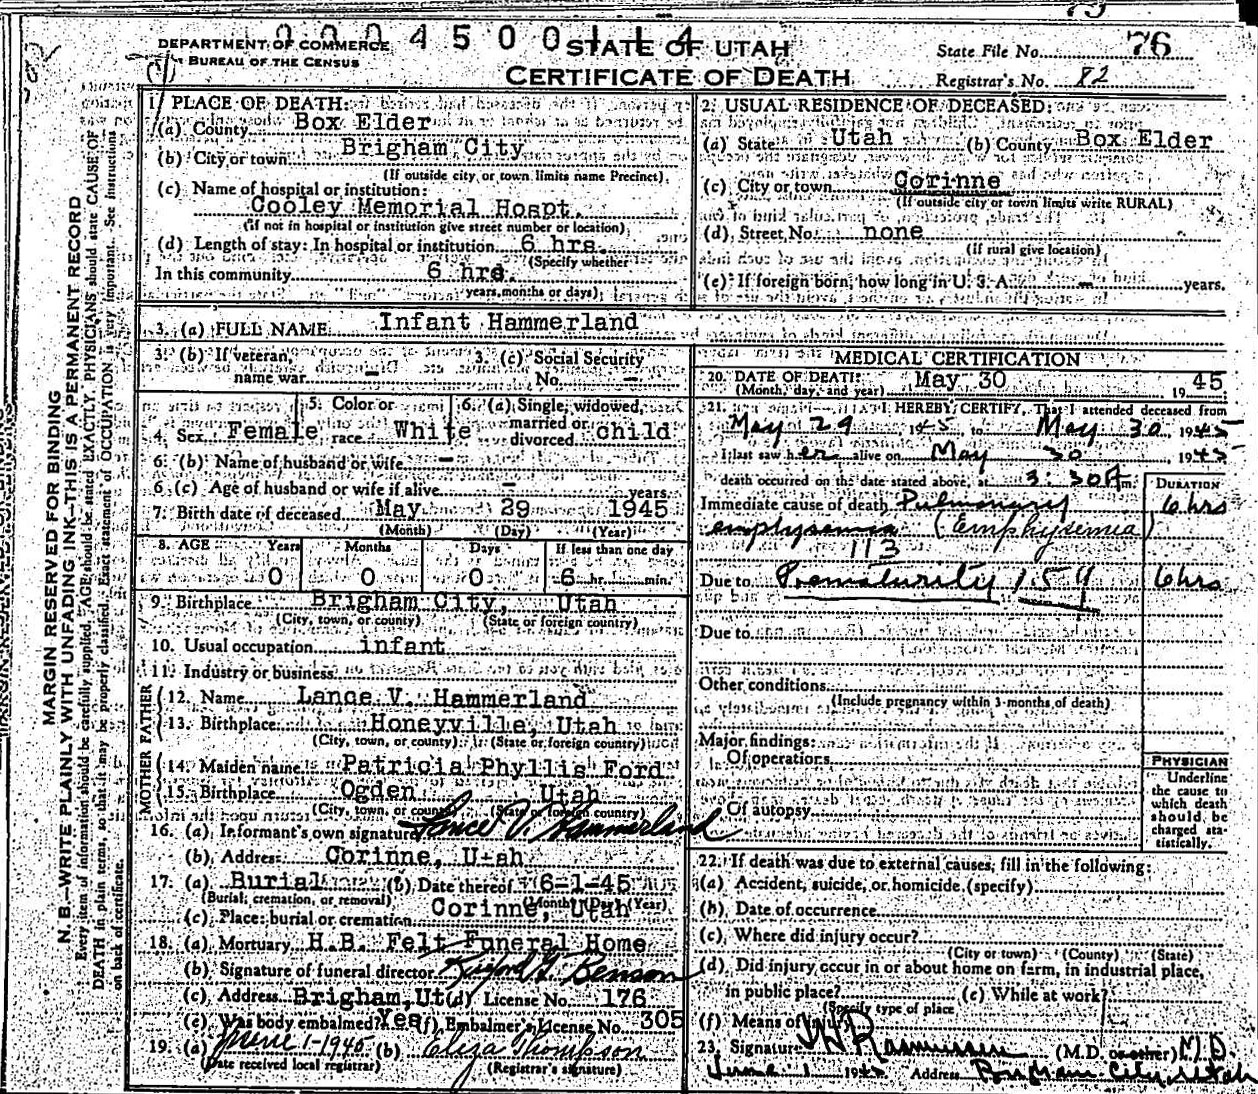 DEPARTMENT OF COMMERCE
BUREAU OF THE CENSUS
0004500114
STATE OF UTAH
CERTIFICATE OF DEATH
State File No. 76
Registrar's No. 82
MARGIN RESERVED FOR BINDING
N. B.—WRITE PLAINLY WITH UNFADING INK—THIS IS A PERMANENT RECORD
Every item of information should be carefully supplied. AGE should be stated EXACTLY. PHYSICIANS should state CAUSE OF
DEATH in plain terms, so that it may be properly classified. Exact statement of OCCUPATION is very important. See instructions
on back of certificate.
1. PLACE OF DEATH:
(a) County Box Elder
(b) City or town Brigham City
(If outside city or town limits name Precinct)
(c) Name of hospital or institution:
Cooley Memorial Hospt.
(if not in hospital or institution give street number or location)
(d) Length of stay: In hospital or institution 6 hrs.
(Specify whether
In this community 6 hrs.
years, months or days)
2. USUAL RESIDENCE OF DECEASED:
(a) State Utah (b) County Box Elder
(c) City or town Corinne
(If outside city or town limits write RURAL)
(d) Street No. none
(if rural give location)
(e) If foreign born, how long in U. S. A. — years.
3. (a) FULL NAME Infant Hammerland
3. (b) If veteran, name war —
3. (c) Social Security No. —
4. Sex Female
5. Color or race White
6. (a) Single, widowed, married or divorced child
6. (b) Name of husband or wife —
6. (c) Age of husband or wife if alive — years
7. Birth date of deceased May 29 1945
(Month) (Day) (Year)
8. AGE Years Months Days If less than one day
0 0 0 6 hr. min.
9. Birthplace Brigham City, Utah
(City, town, or county) (State or foreign country)
10. Usual occupation infant
11. Industry or business
FATHER
12. Name Lance V. Hammerland
13. Birthplace Honeyville, Utah
(City, town, or county) (State or foreign country)
MOTHER
14. Maiden name Patricia Phyllis Ford
15. Birthplace Ogden Utah
(City, town, or county) (State or foreign country)
16. (a) Informant's own signature Lance V. Hammerland
(b) Address Corinne, Utah
17. (a) Burial (b) Date thereof 6-1-45
(Burial, cremation, or removal) (Month) (Day) (Year)
(c) Place: burial or cremation Corinne, Utah
18. (a) Mortuary H.B. Felt Funeral Home
(b) Signature of funeral director Benson
(c) Address Brigham, Ut (d) License No. 176
(e) Was body embalmed? Yes (f) Embalmer's License No. 305
19. (a) June 1-1945 (b) Eliza Thompson
(Date received local registrar) (Registrar's signature)
MEDICAL CERTIFICATION
20. DATE OF DEATH: May 30 1945
(Month, day, and year)
21. I HEREBY CERTIFY, That I attended deceased from
May 29 1945 to May 30 1945
I last saw her alive on May 30 1945
death occurred on the date stated above, at 3:30 A m.
DURATION
Immediate cause of death Pulmonary 6 hrs
emphysemia (Emphysemia)
113
Due to Prematurity 159 6 hrs
Due to
Other conditions
(Include pregnancy within 3 months of death)
Major findings:
Of operations
Of autopsy
PHYSICIAN
Underline
the cause to
which death
should be
charged sta-
tistically.
22. If death was due to external causes, fill in the following:
(a) Accident, suicide, or homicide (specify)
(b) Date of occurrence
(c) Where did injury occur?
(City or town) (County) (State)
(d) Did injury occur in or about home on farm, in industrial place,
in public place? (e) While at work?
(Specify type of place
(f) Means of
23. Signature W R Rasmussen (M.D. or other) M.D.
June 1 1945 Address Brigham City, Utah